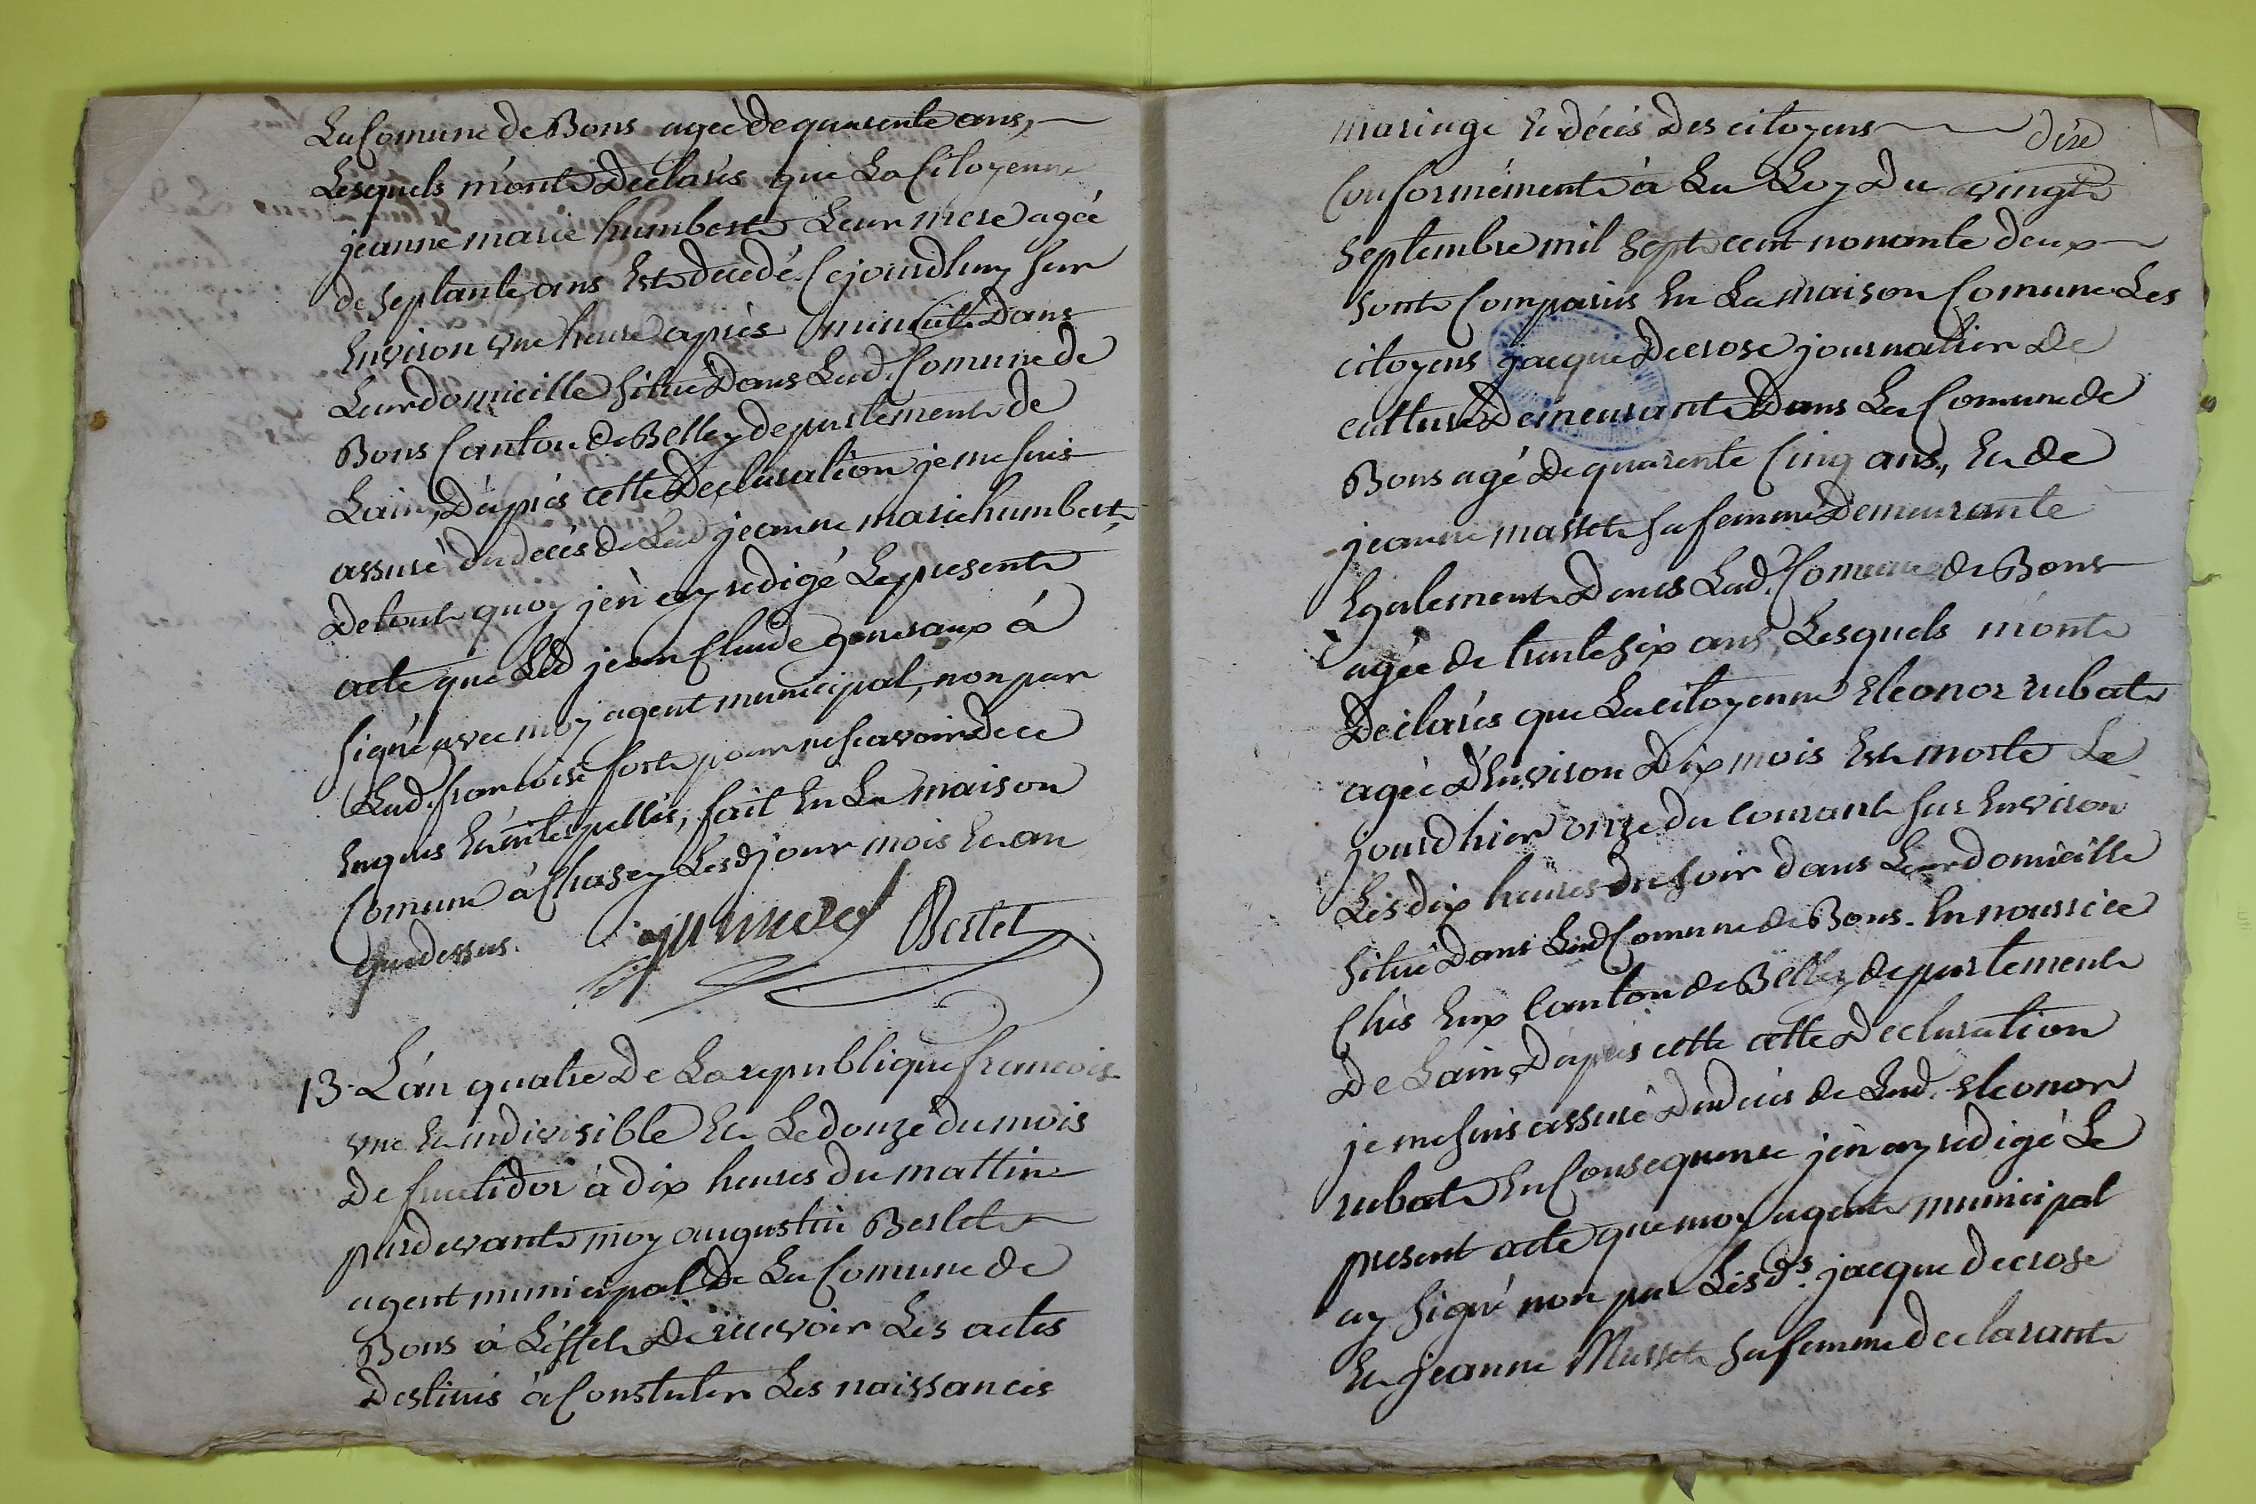 La Comune de Bons ageé de quarente ans,
Lesquels m'ont Declarés que La Citoyenne
jeanne marie humbert Leur mere agée
de septante ans Est decedé Cejourdhuy sur
Environ une heure après minuit Dans
Leur domicille situé Dans Lad. Comune de
Bons Canton de Belley departement de
Lain, D'après cette Declaration je me suis
assuré du decés de Lad jeanne marie humbert
de tout quoy jen ay redigé Le present
acte que Led jean Claude genevaux à
signé avec moy agent municipal, non par
Lad. francoise fort pour ne scavoir De ce
Enquis Et interpellés, fait En La maison
Comune à Chasey Lesd jour mois Et an
que dessus.
Berlet
13. L'an quatre De La republique francois
une Et indivisible Et Le douze du mois
De fructidor à dix heures du mattin
pardevant moy augustin Berlet
agent municipal De La Comune de
Bons à L'effet De recevoir Les actes
Destinés à Constater Les naissances
mariage Et décés Des citoyens
dire
Conformément à La Loy Du vingt
septembre mil sept cent nonante deux
sont Comparus En La maison Comune Les
citoyens jacque Decrose journalier De
culture Demeurant Dans La Comune de
Bons agé De quarente Cinq ans, Et de
jeanne masset sa femme Demeurante
Egalement Dans Lad. Comune de Bons
agée de trente six ans, Lesquels mont
Déclarés que La citoyenne Eleonor rubat
agée D'Environ Dix mois Est morte Le
jourd hier onze du courant sur Environ
Les dix heures du soir dans Leur domicille
situé Dans Lad Comune de Bons. En nourrice
Chés Eux Canton de Belley departement
De Lain, D'après cette cette Declaration
je me suis assuré Du decés de Lad. Eleonor
rubat En Consequence jen ay redigé Le
present acte que moy agent municipal
ay signé non par Les ds. jacque Decrose
Et jeanne Masset sa femme declarant